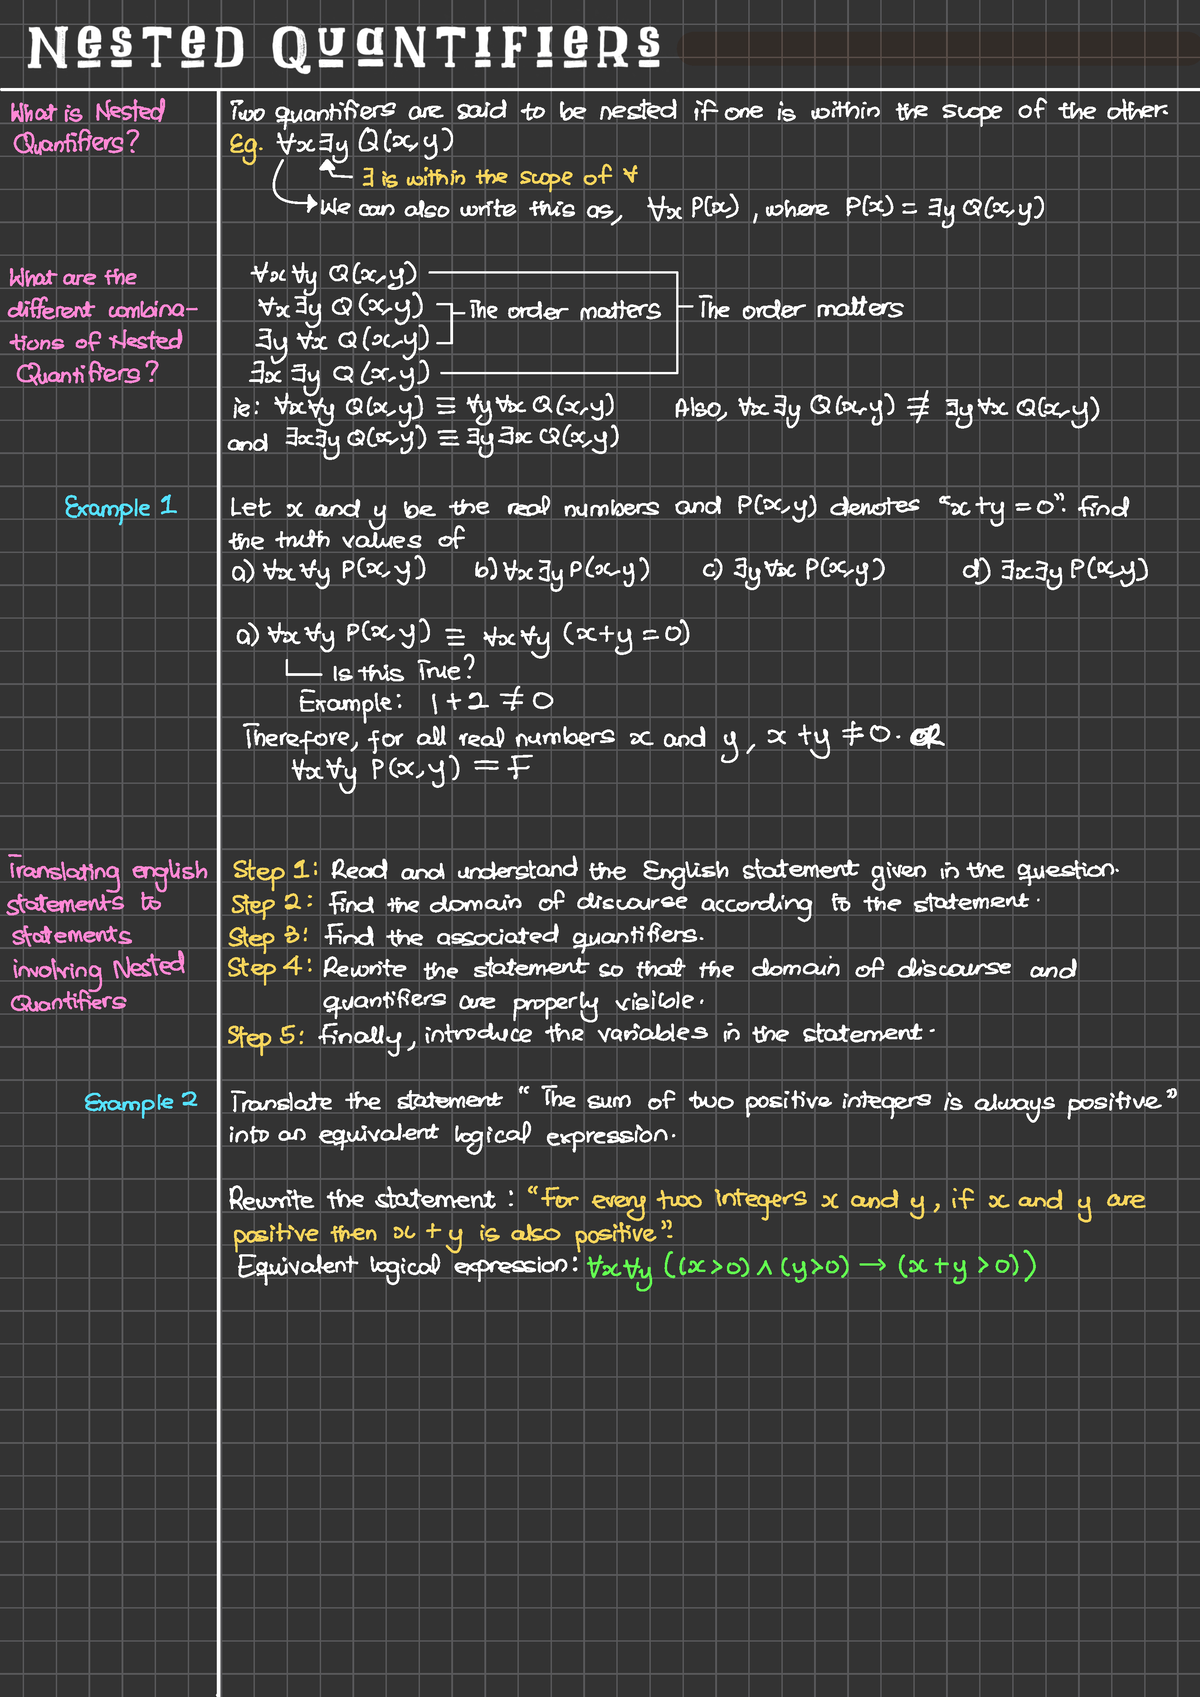 NESTED QUANTIFIERS
What is Nested
Quantifiers?
Two quantifiers are said to be nested if one is within the scope of the other.
Eg. ∀x∃y Q(x,y)
∃ is within the scope of ∀
We can also write this as, ∀x P(x), where P(x) = ∃y Q(x,y)
What are the
different combina-
tions of Nested
Quantifiers?
∀x ∀y Q(x,y)
∀x ∃y Q(x,y)
The order matters
The order matters
∃y ∀x Q(x,y)
∃x ∃y Q(x,y)
ie: ∀x∀y Q(x,y) ≡ ∀y∀x Q(x,y) Also, ∀x∃y Q(x,y) ≢ ∃y∀x Q(x,y)
and ∃x∃y Q(x,y) ≡ ∃y∃x Q(x,y)
Example 1
Let x and y be the real numbers and P(x,y) denotes "x+y=0". Find
the truth values of
a) ∀x∀y P(x,y) b) ∀x∃y P(x,y) c) ∃y∀x P(x,y) d) ∃x∃y P(x,y)
a) ∀x∀y P(x,y) ≡ ∀x∀y (x+y=0)
Is this True?
Example: 1+2 ≠ 0
Therefore, for all real numbers x and y, x+y ≠ 0. OR
∀x∀y P(x,y) = F
Translating english
statements to
statements
involving Nested
Quantifiers
Step 1: Read and understand the English statement given in the question.
Step 2: Find the domain of discourse according to the statement.
Step 3: Find the associated quantifiers.
Step 4: Rewrite the statement so that the domain of discourse and
quantifiers are properly visible.
Step 5: Finally, introduce the variables in the statement.
Example 2
Translate the statement "The sum of two positive integers is always positive"
into an equivalent logical expression.
Rewrite the statement: "For every two integers x and y, if x and y are
positive then x+y is also positive".
Equivalent logical expression: ∀x∀y ((x>0) ∧ (y>0) → (x+y>0))